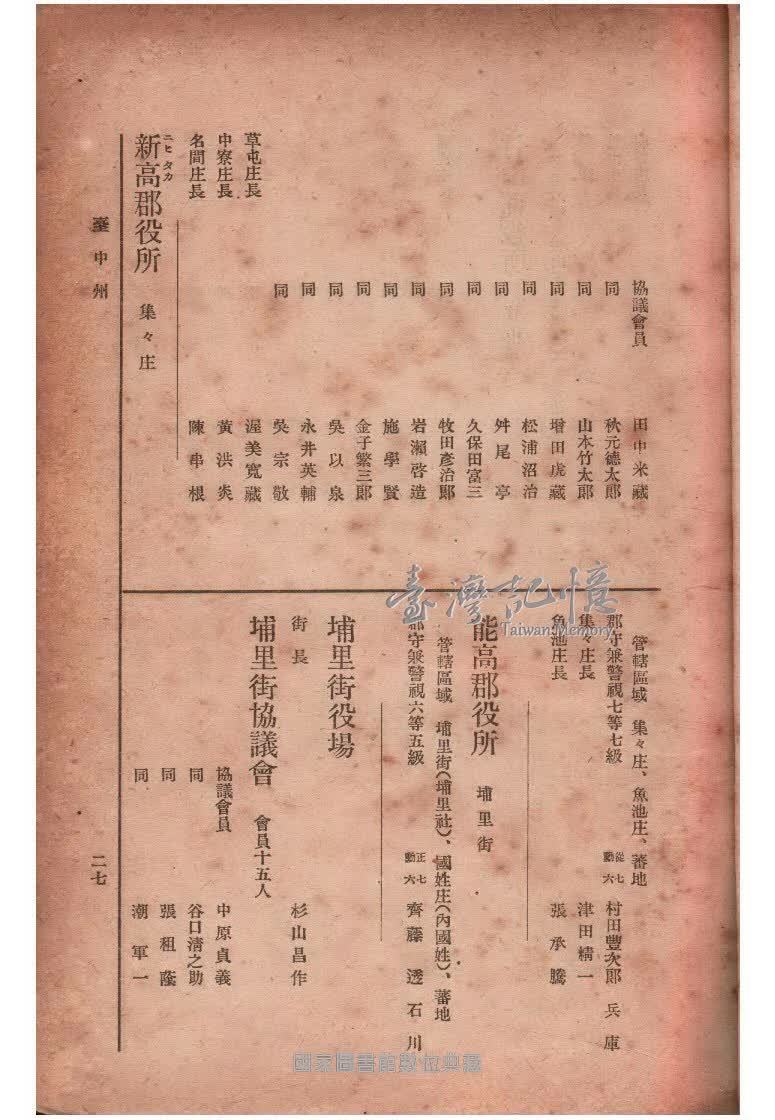 協議會員 田中米藏
同 秋元德太郎
同 山本竹太郎
同 增田虎藏
同 松浦沼治
同 舛尾亭
同 久保田富三
同 牧田彥治郎
同 岩瀨啓造
同 施學賢
同 金子繁三郎
同 吳以泉
同 永井英輔
同 吳宗敬
草屯庄長 渥美寬藏
中寮庄長 黃洪炎
名間庄長 陳串根
新高郡役所 集々庄
ニヒタカ
管轄區域 集々庄、魚池庄、蕃地
郡守兼警視七等七級 從七勳六 村田豐次郎 兵庫
集々庄長 津田精一
魚池庄長 張承騰
能高郡役所 埔里街
管轄區域 埔里街(埔里社)、國姓庄(內國姓)、蕃地
郡守兼警視六等五級 正七勳六 齊藤透 石川
埔里街役場
街長 杉山昌作
埔里街協議會 會員十五人
協議會員 中原貞義
同 谷口淸之助
同 張祖蔭
同 潮軍一
臺中州
二七
臺灣記憶
Taiwan Memory
國家圖書館數位典藏